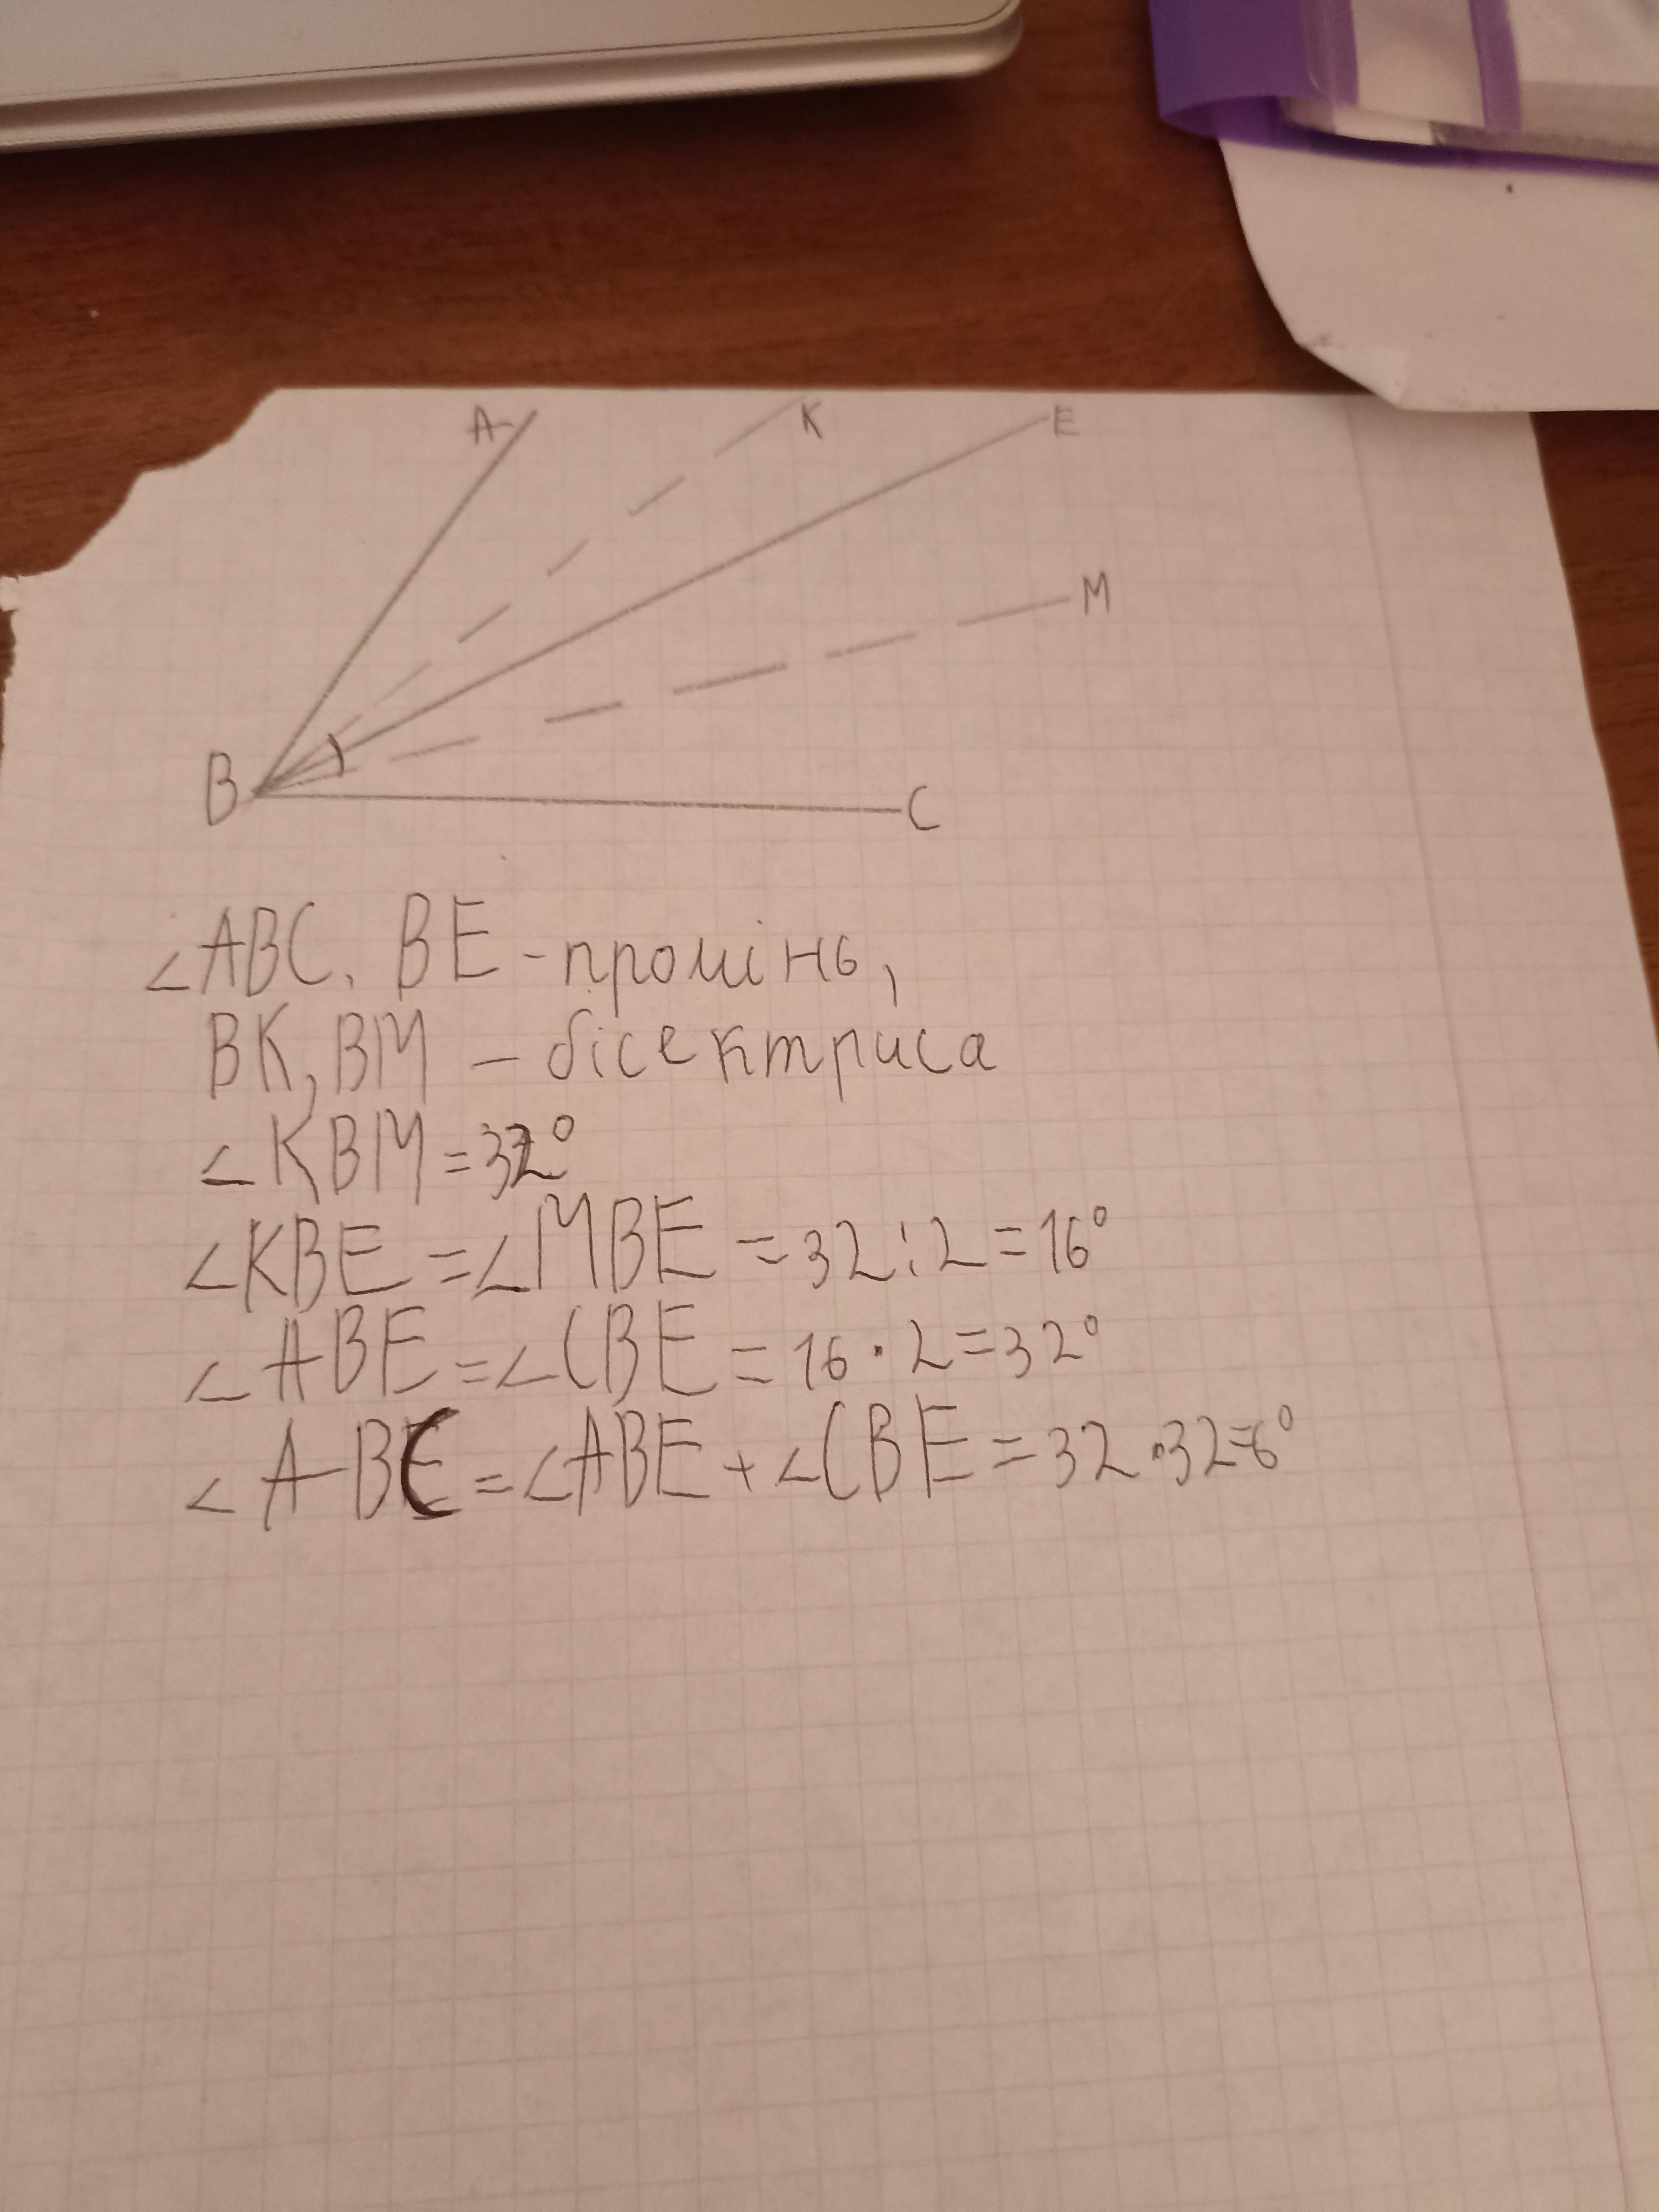 A K E
M
B C
∠ABC. BE - промінь,
BK, BM - бісектриса
∠KBM = 32°
∠KBE = ∠MBE = 32 : 2 = 16°
∠ABE = ∠CBE = 16 · 2 = 32°
∠ABC = ∠ABE + ∠CBE = 32 · 32 = 6°